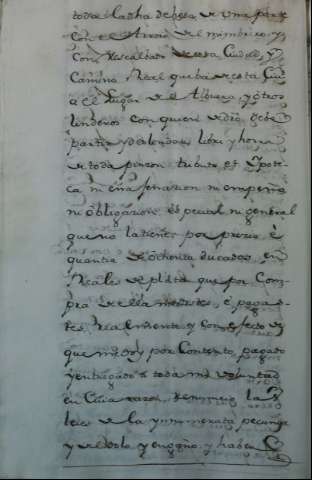 toda la dha dehesa de una parte
con el Arroio del mimbrero, y
con rescaldado de esta Ciudad, y
Camino Real que ba de esta Ciu
a el Lugar de el Albuera, y otros
linderos con quien
parte y da lendan libre y horra
de toda pinzon tributo Ypote
ca ni enagenazion ni empeño
ni obligazion espezial ni general
que no la tiene por prezio e
quantia de ochenta ducados en
Reales de plata que por Com
pra de ella me distes, e pagas
tes Realmente y con efecto de
que me doy por Contento, pagado
y entregado a toda mi voluntad
en Cuia razon renuncio las
leies de la ynnumerata pecunia
y de dolo y engaño, y haber